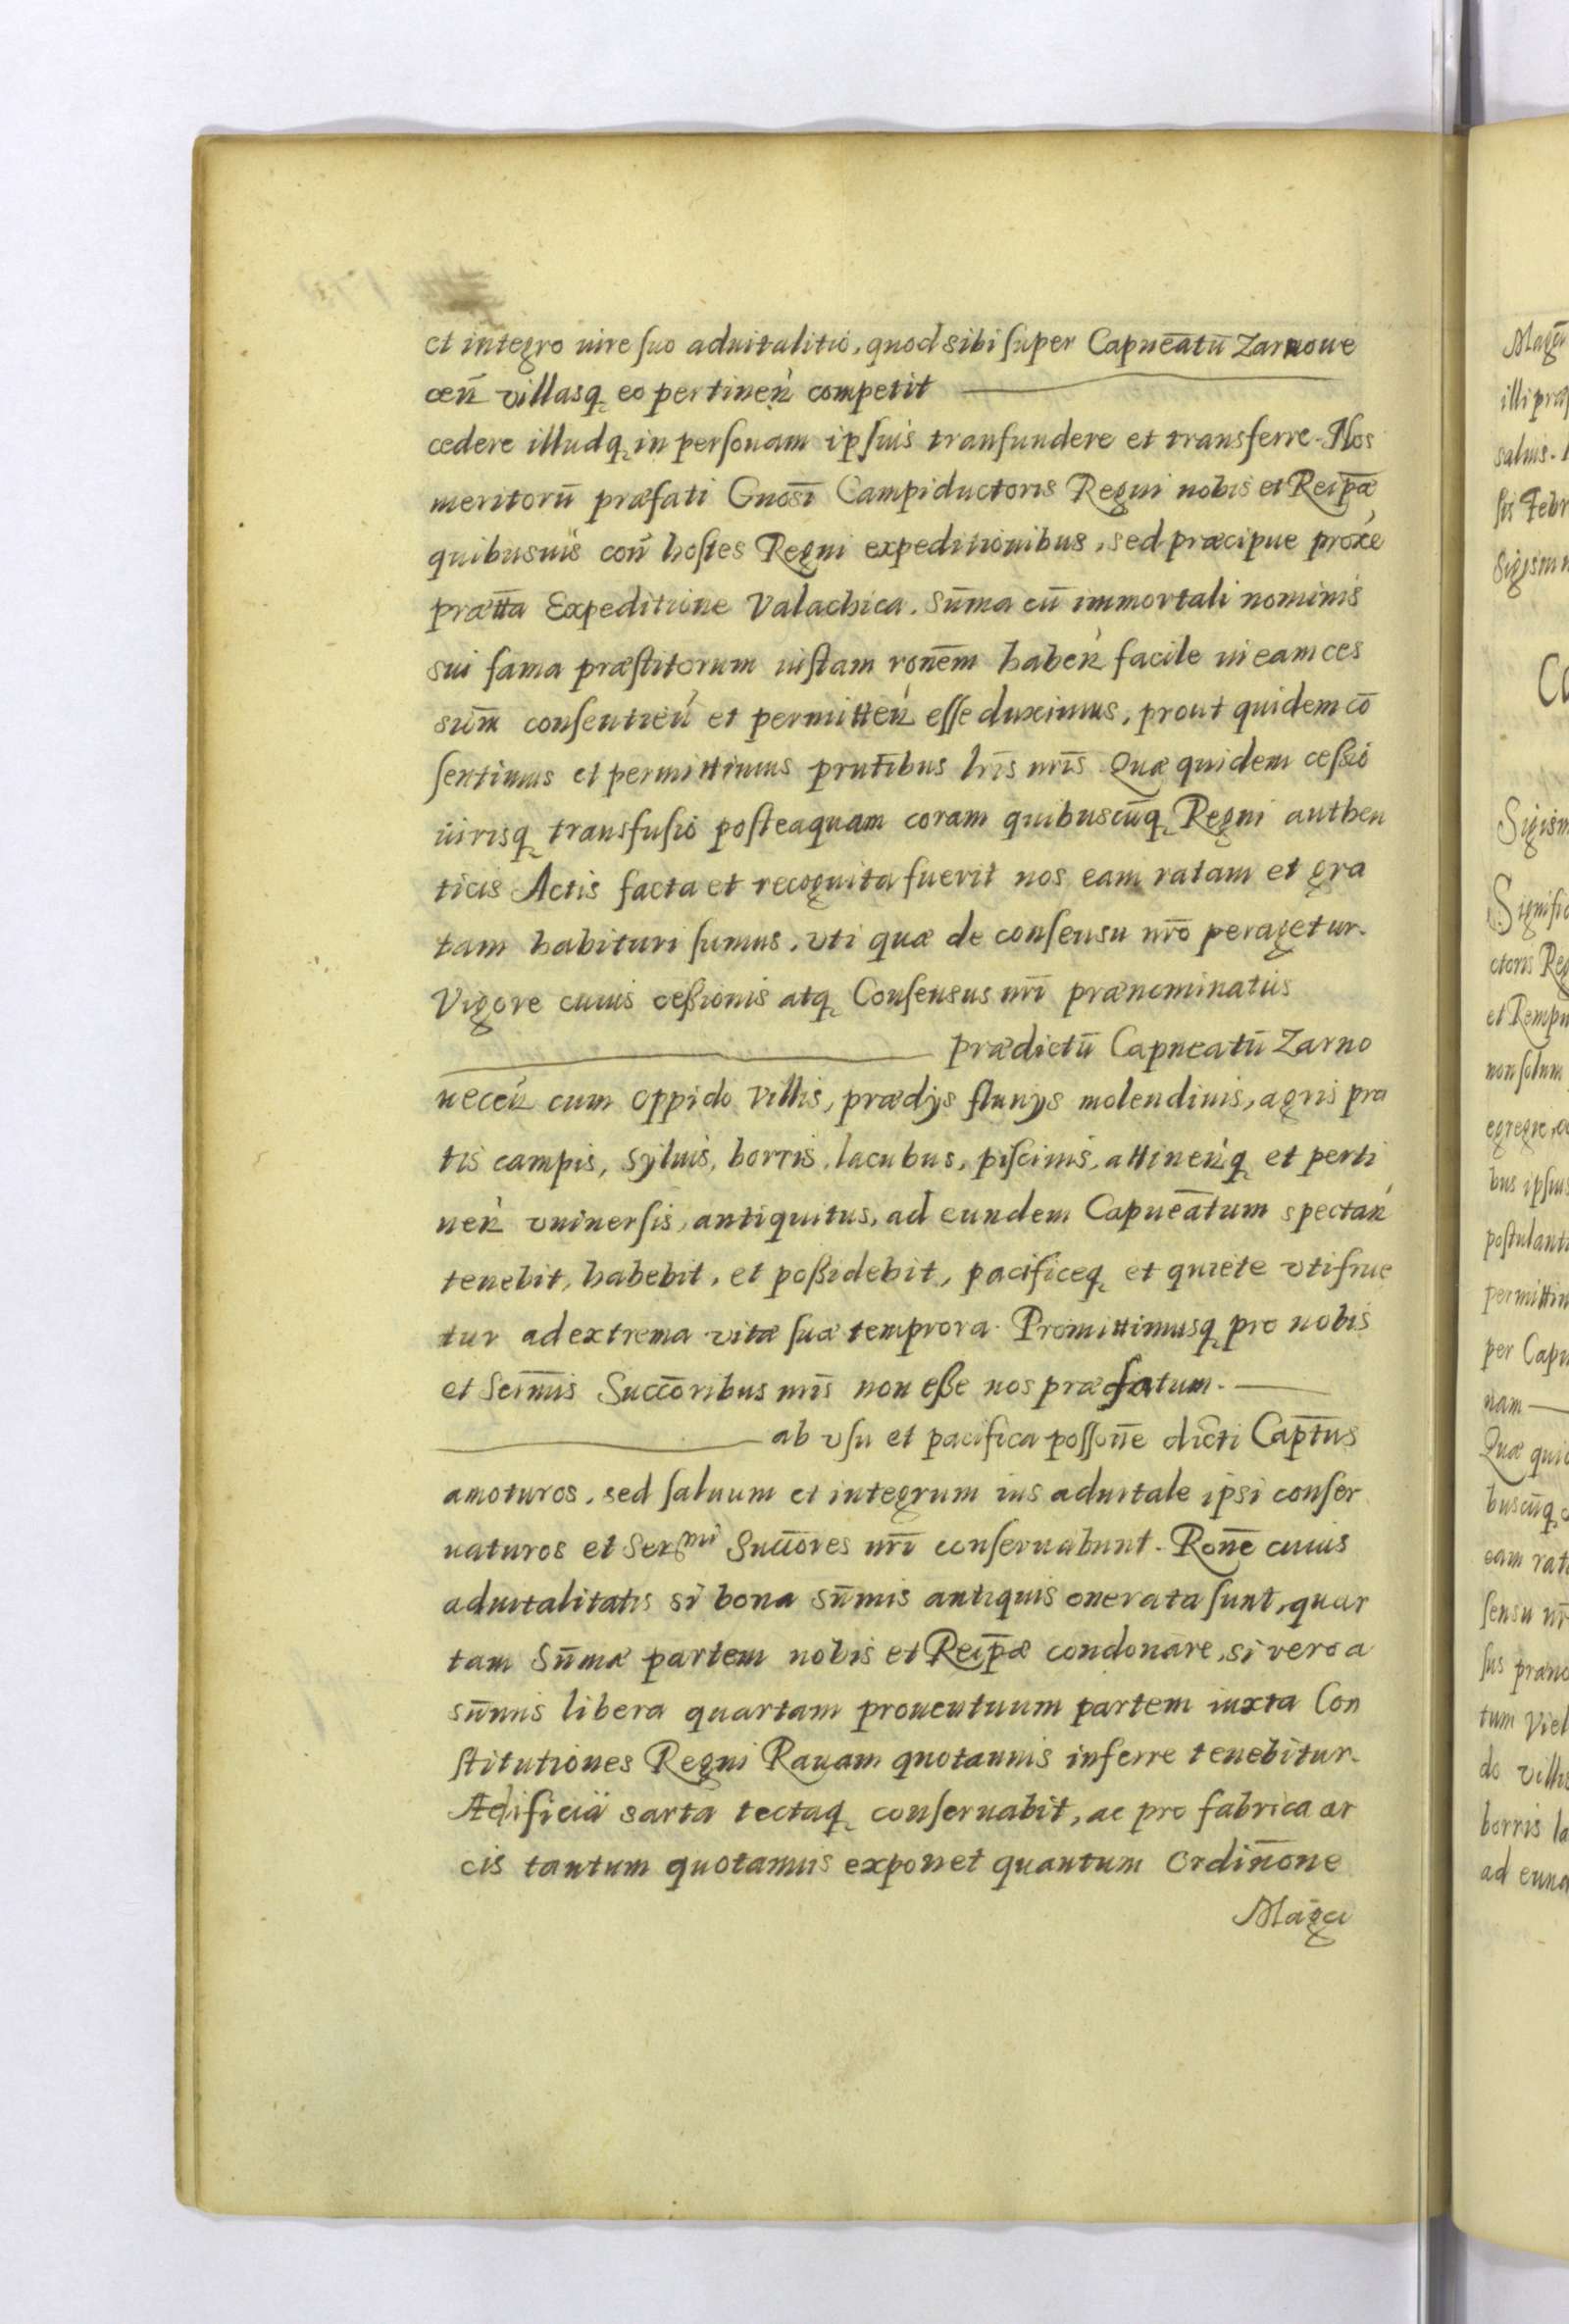 et integro iure suo aduitalitio, quod sibi super Capneātū Zarnoue
ceń villasq eo pertineń competit
cedere illudq in personam ipsius transfundere et transferre. Nos
meritorū præfati Gnosī Campiductoris Regni nobis et Reipæ
quibusuis coń hostes Regni expeditionibus, sed præcipue proxe
prætta Expeditione Valachica. Sūma cū immortali nominis
sui fama præstitorum iustam ronēm habeń facile in eam ces
sum̄ consentień et permitteń esse duximus, prout quidem cō
sentimus et permittimus prntībus lrīs nrīs. Quæ quidem cessio
iurisq transfusio posteaquam coram quibuscūq Regni authen
ticis Actis facta et recognita fuerit nos eam ratam et gra
tam habituri sumus, vti quæ de consensu nrō peragetur.
Vigore cuius cessionis atq Consensus nrī prænominatus
prædictū Capneatū Zarno
ueceń cum oppido villis, prædys fluuys molendinis, agris pra
tis campis, syluis, borris, lacubus, piscinis, attineńq et perti
neń vniuersis, antiquitus, ad eundem Capneātum spectań
tenebit, habebit, et possidebit, pacificeq et quiete vtifrue
tur ad extrema vitæ suæ temprora. Promittimusq pro nobis
et Serm̄is Succōribus nrīs non esse nos præfatum.
ab vsu et pacifica possonē dicti Captūs
amoturos, sed saluum et integrum ius aduitale ipsi conser
uaturos et Sermi Succōres nrī conseruabunt. Ronē cuius
aduitalitatis si bona sūmis antiquis onerata sunt, quar
tam Sūmæ partem nobis et Reipæ condonare, si vero a
sūmis libera quartam prouentuum partem iuxta Con
stitutiones Regni Rauam quotannis inferre tenebitur.
Ædificia sarta tectaq conseruabit, ac pro fabrica ar
cis tantum quotannis exponet quantum ordinōne
Magci